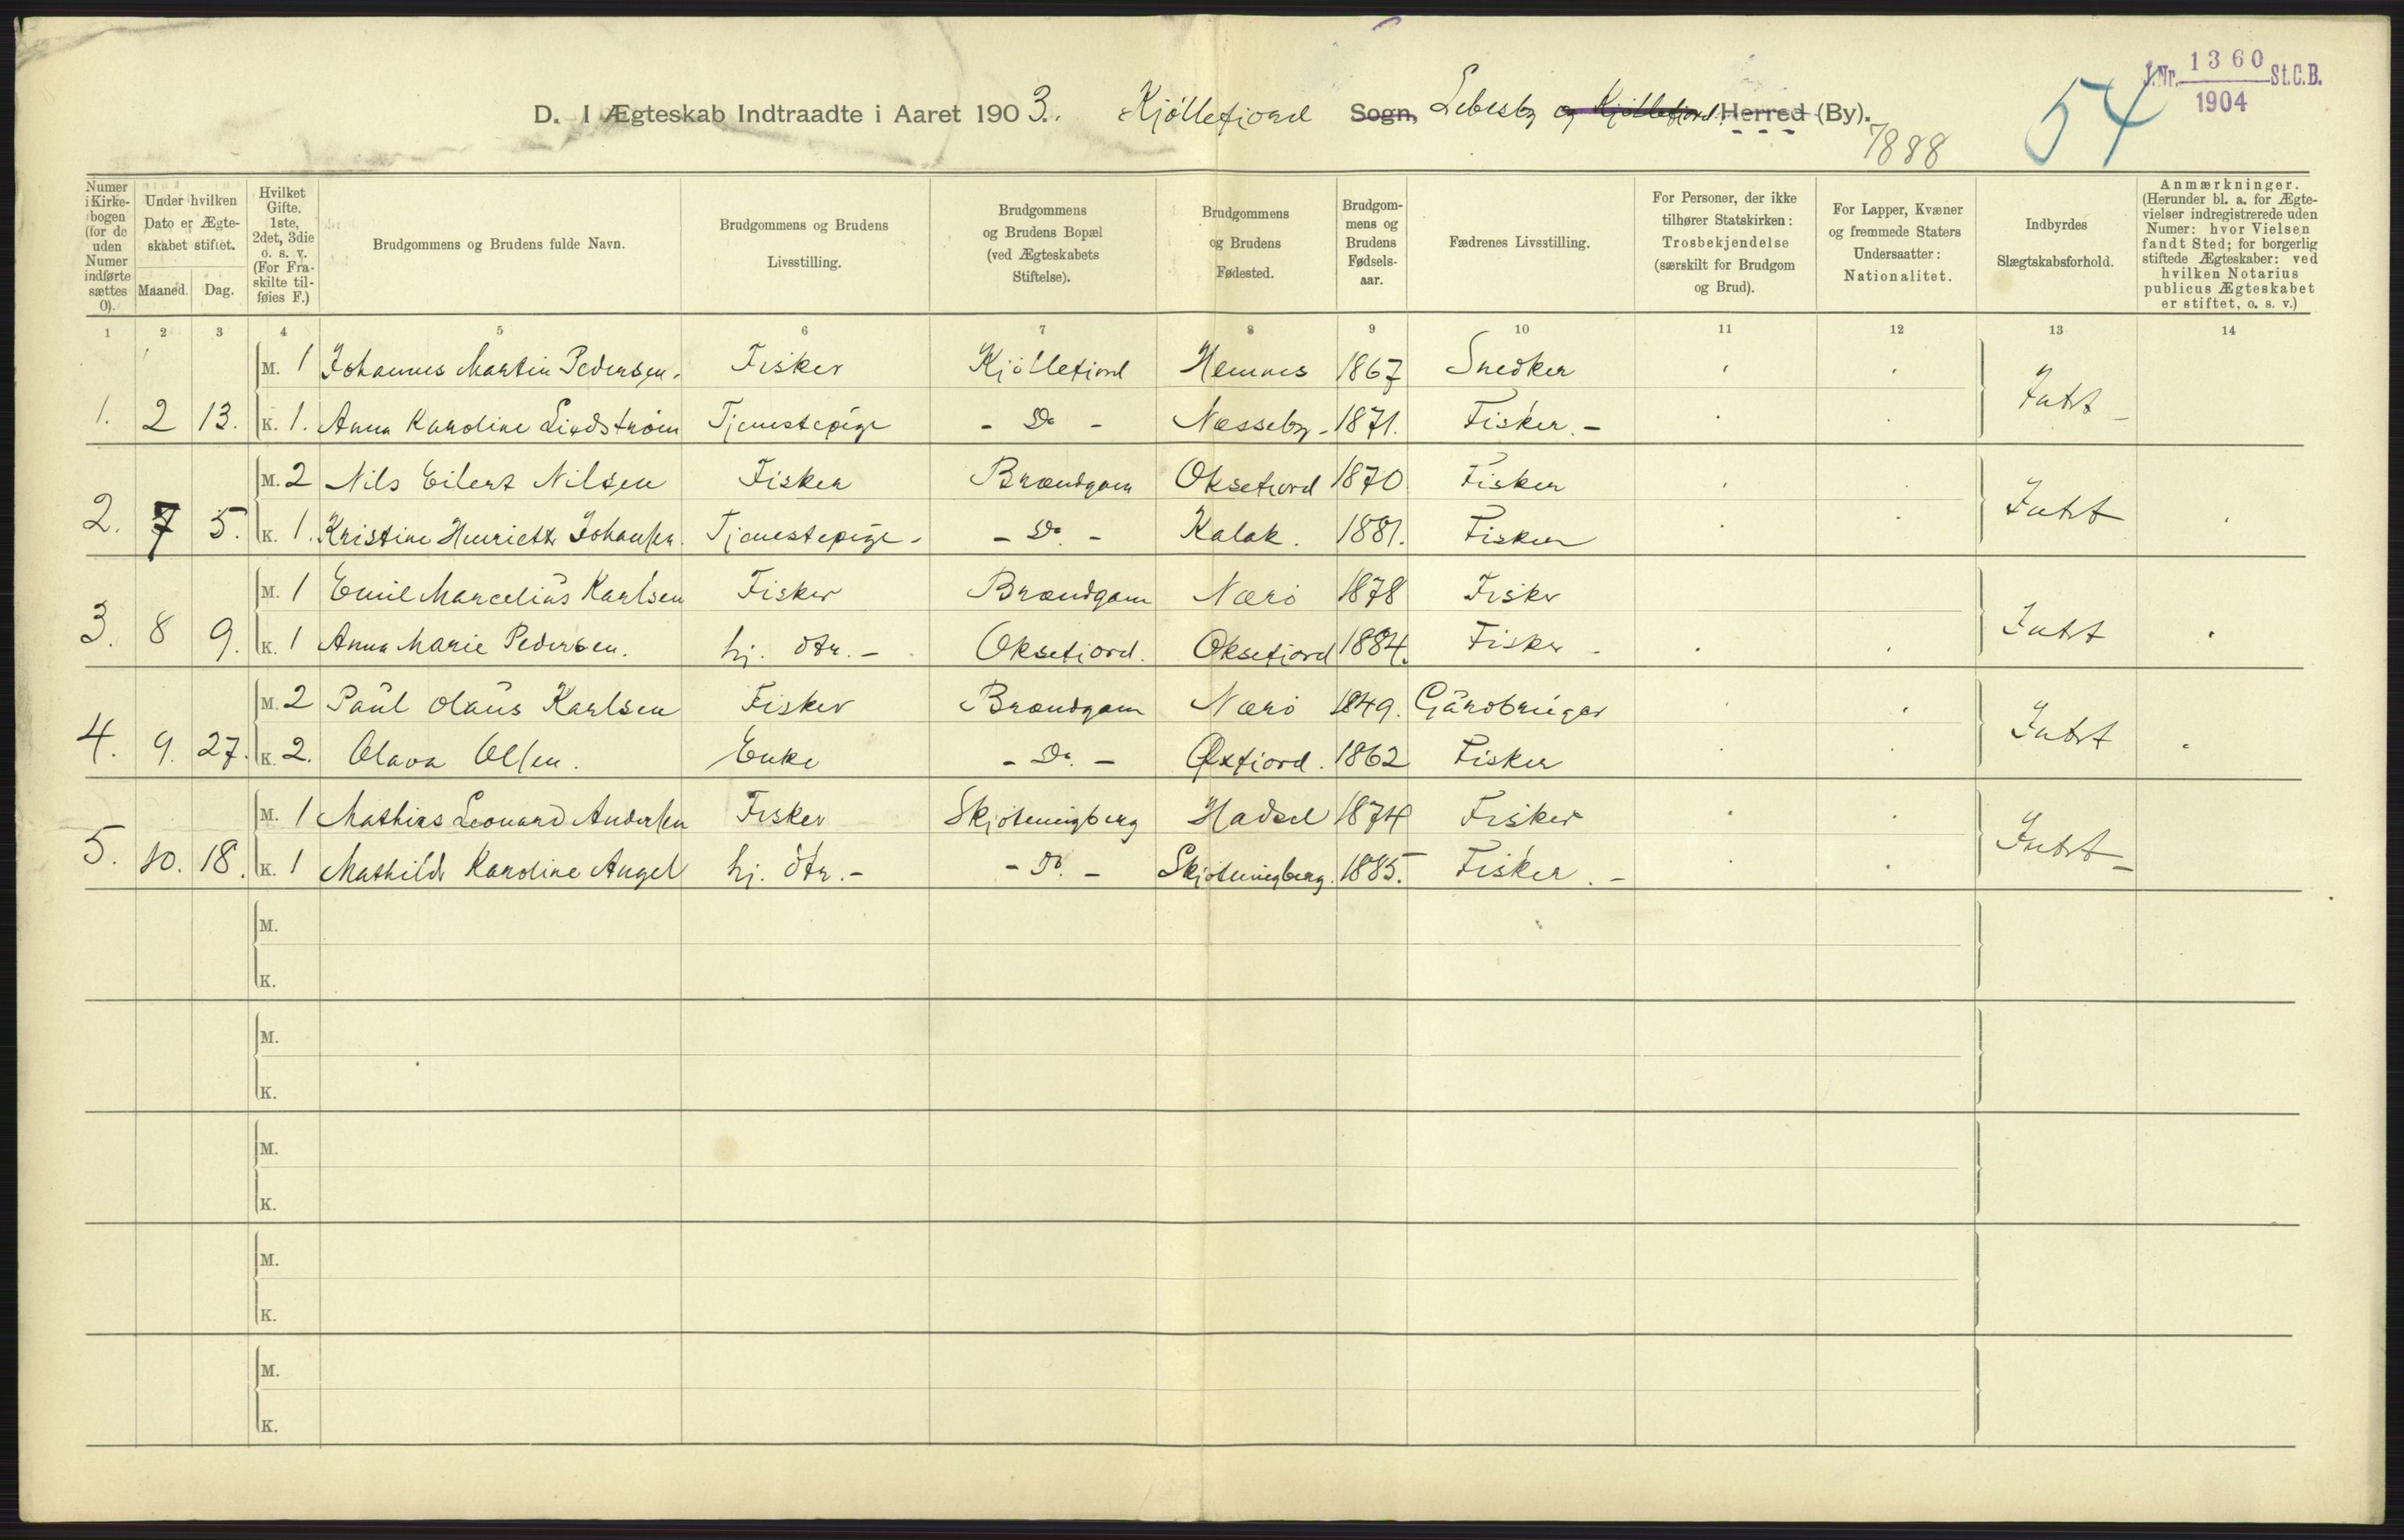 J.Nr. 1360 St.C.B.
1904
54
D. I Ægteskab Indtraadte i Aaret 1903. Kjøllefjord Sogn, Lebesby og Kjøllefjord Herred (By).
7888
Numer i Kirkebogen (for de uden Numer indførte sættes 0).
Under hvilken Dato er Ægteskabet stiftet.
Maaned. Dag.
Hvilket Gifte. 1ste, 2det, 3die o. s. v. (For Fraskilte tilføies F.)
Brudgommens og Brudens fulde Navn.
Brudgommens og Brudens Livsstilling.
Brudgommens og Brudens Bopæl (ved Ægteskabets Stiftelse).
Brudgommens og Brudens Fødested.
Brudgommens og Brudens Fødselsaar.
Fædrenes Livsstilling.
For Personer, der ikke tilhører Statskirken: Trosbekjendelse (særskilt for Brudgom og Brud).
For Lapper, Kvæner og fremmede Staters Undersaatter: Nationalitet.
Indbyrdes Slægtskabsforhold.
Anmærkninger. (Herunder bl. a. for Ægtevielser indregistrerede uden Numer: hvor Vielsen fandt Sted; for borgerlig stiftede Ægteskaber: ved hvilken Notarius publicus Ægteskabet er stiftet, o. s. v.)
1 2 3 4 5 6 7 8 9 10 11 12 13 14
M. 1 Johannes Martin Pedersen. Fisker Kjøllefjord Hemnes 1867 Snedker
1. 2 13. K. 1. Anna Karoline Lindstrøm Tjenestepige - Do - Nesseby - 1871. Fisker. - Intet -
M. 2 Nils Eilert Nilsen Fisker Brændgam Oksefjord 1870 Fisker
2. 7 5. K. 1. Kristine Henriette Johansen. Tjenestepige - - Do. - Kalak. 1881. Fisker Intet
M. 1 Emil Marcelius Karlsen Fisker Brændgam Nærø 1878 Fisker
3. 8 9. K. 1 Anna Marie Pedersen. hj. dtr. - Oksefjord. Oksefjord 1884. Fisker - Intet
M. 2 Paul Olaus Karlsen Fisker Brændgam Nærø 1849. Gårdbruger
4. 9. 27. K. 2. Olava Olsen. Enke - Do. - Øxfjord. 1862 Fisker Intet
M. 1 Mathias Leonard Andersen Fisker Skjøtningberg Hadsel 1874 Fisker
5. 10. 18. K. 1 Mathilde Karoline Angel hj. dtr. - - Do. - Skjøtningberg. 1885. Fisker. - Intet -
M.
K.
M.
K.
M.
K.
M.
K.
M.
K.